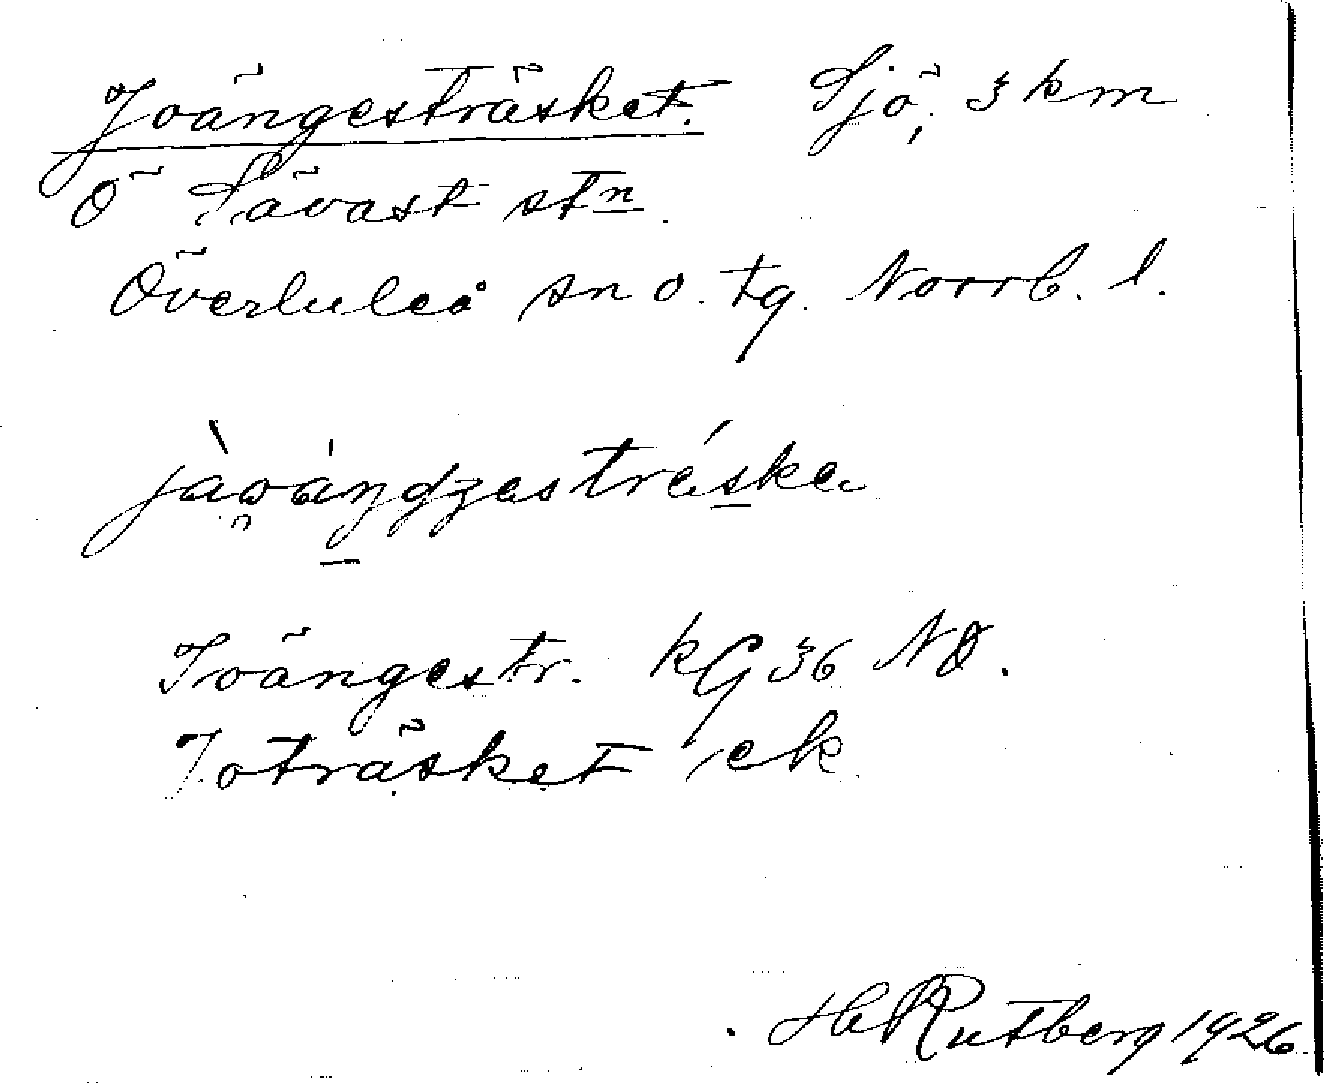 Joängesträsket. Sjö, 3 km
Ö Sävast stn.
Överluleå sn o. tg. Norrb. l.
Joängestr. kG 36 NO.
Joträsket ek
H Rutberg 1926